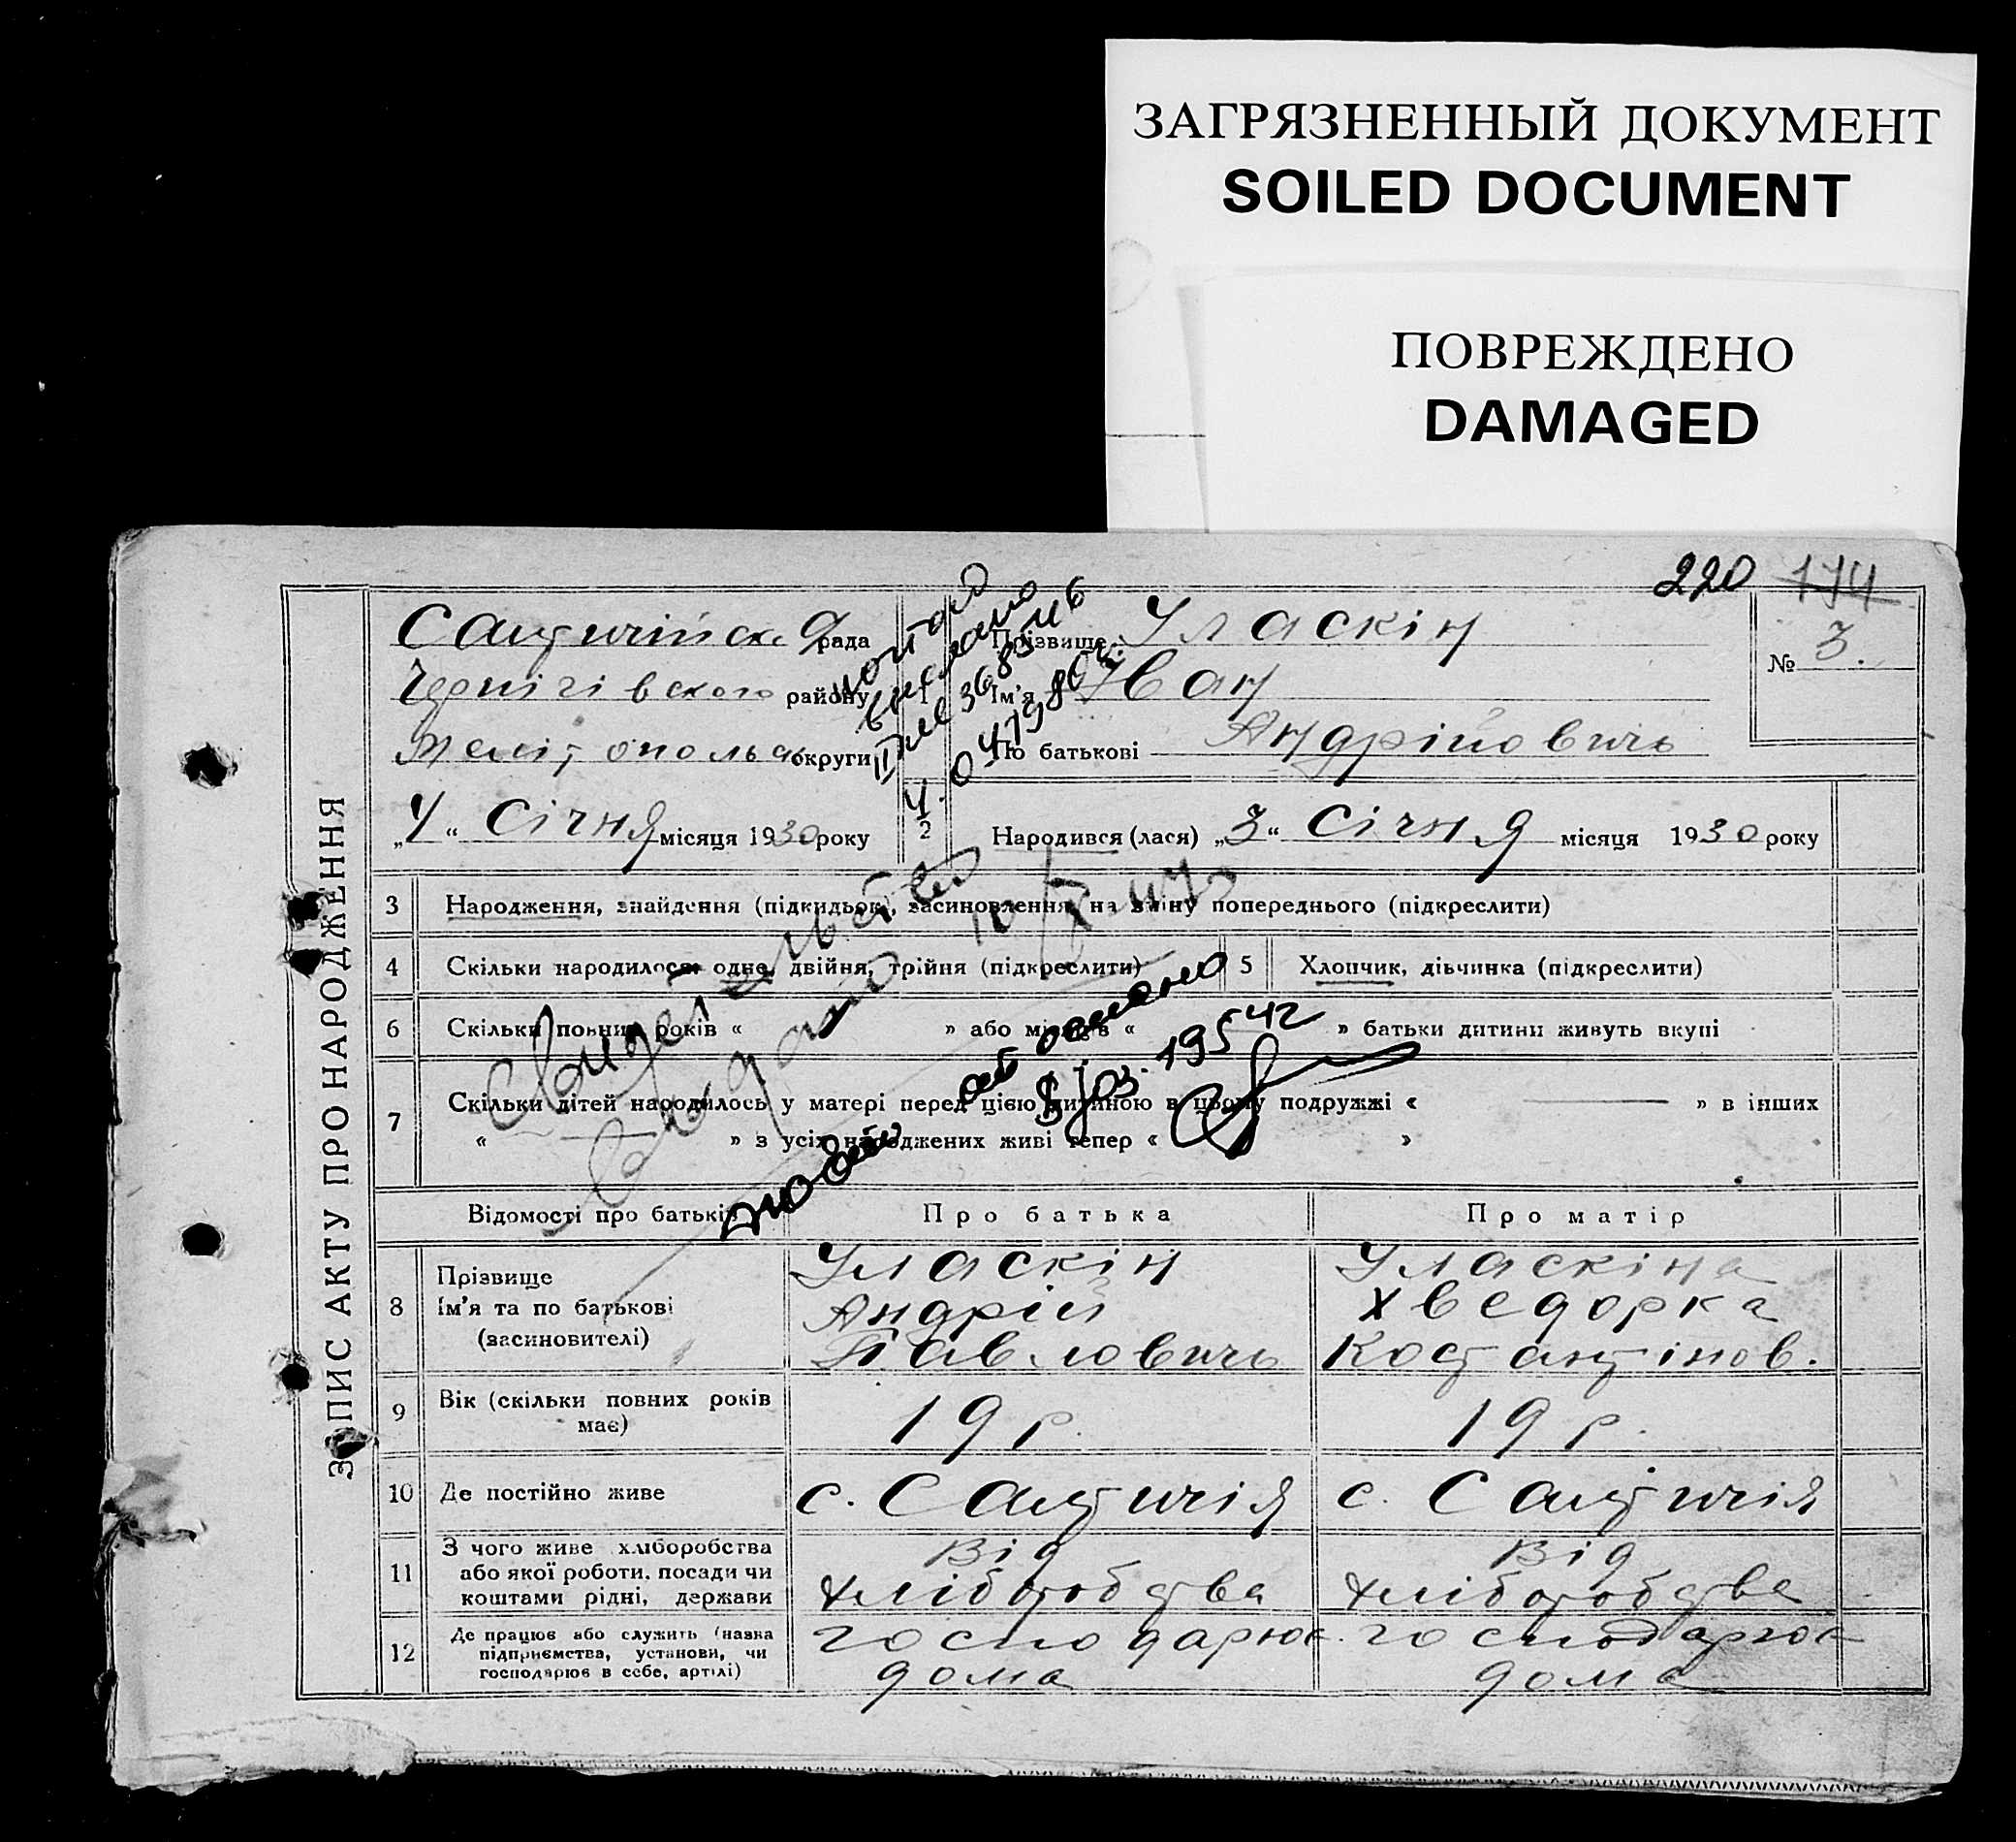 ЗАГРЯЗНЕННЫЙ ДОКУМЕНТ
SOILED DOCUMENT
ПОВРЕЖДЕНО
DAMAGED
220 174
ЗАПИС АКТУ ПРО НАРОДЖЕННЯ
рада
Чернігівского району
округи
„4“ Січня місяця 1930 року
1 Прізвище Уласкін
Ім'я Іван
По батькові Андрійовичь
№ 3.
2 Народився (лася) „3“ Січня місяця 1930 року
3 Народження, знайдення (підкидьок), засиновлення, на зміну попереднього (підкреслити)
4 Скільки народилося: одне, двійня, трійня (підкреслити)
5 Хлопчик, дівчинка (підкреслити)
6 Скільки повних років « » або місяців « » батьки дитини живуть вкупі
7 Скільки дітей народилось у матері перед цією дитиною в цьому подружжі « — » в інших
« — » з усіх народжених живі тепер « »
Свидетельство
Выдано 10/X-47
Відомості про батьків
Про батька
Про матір
8 Прізвище
Ім'я та по батькові
(засиновителі)
Уласкін
Андрій
Павловичь
Уласкіна
Хведорка
Костантінов.
9 Вік (скільки повних років має)
19 р.
19 р.
10 Де постійно живе
11 З чого живе хліборобства
або якої роботи, посади чи
коштами рідні, держави
Від
хліборобства
Від
хліборобства
12 Де працює або служить (назва
підприємства, установи, чи
господарює в себе, артілі)
господарює
дома
господарює
дома